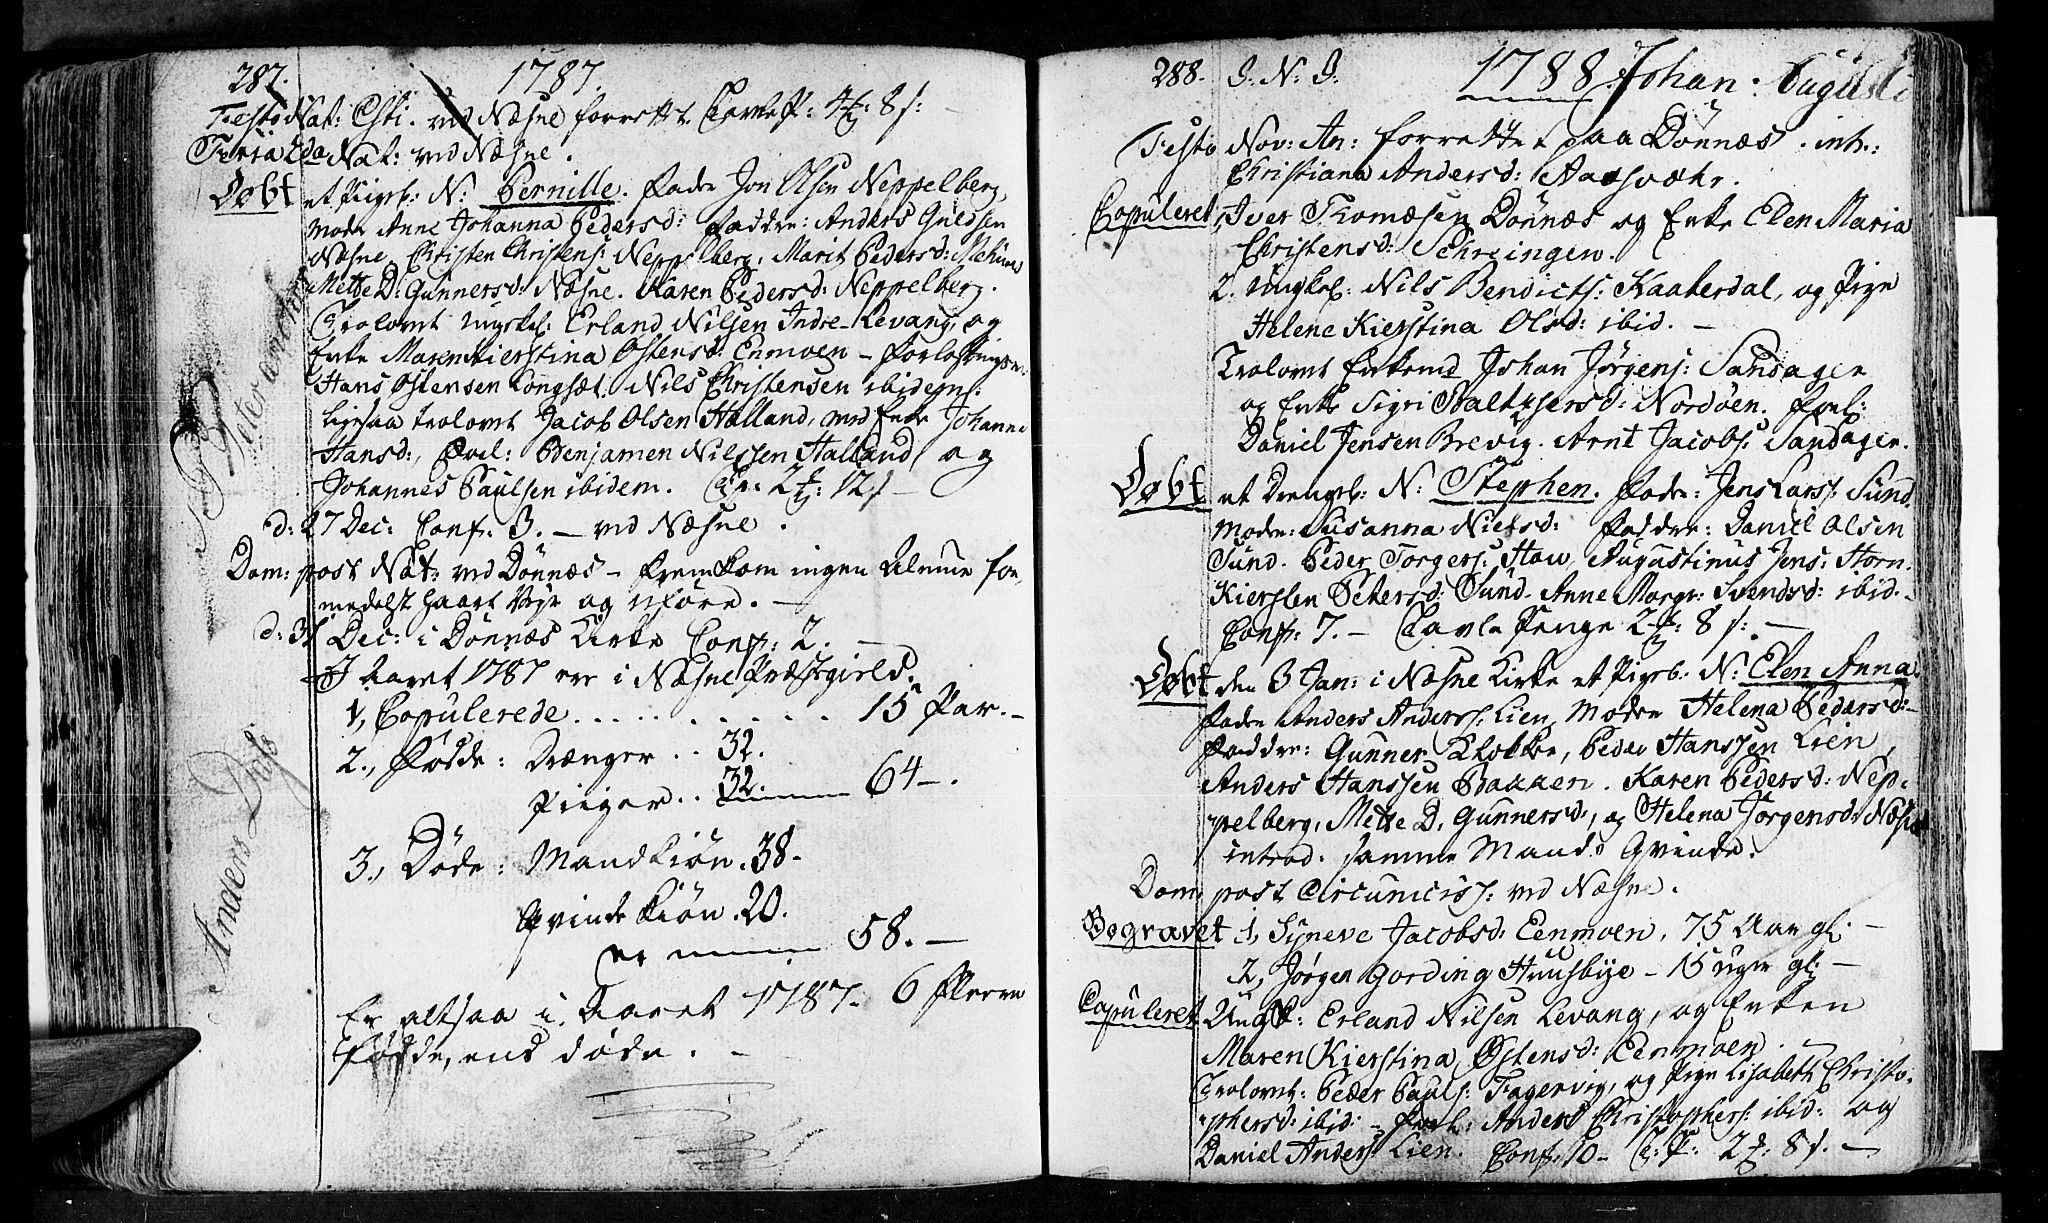 287. 1787.
Festo Nat: Xsti. ved Næsne forrettet Tavlep: 4 : 8 s: -
Feria 2da Nat: ved Næsne.
Døbt et Pigeb: N: Pernille. Fader Jon Olsen Neppelberg,
Moder Anne Johanna Pedersd: Faddre: Anders Guldsen
Næsne, Christen Christens: Neppelberg, Marit Pedersd:
Mette D: Gunnersd: Næsne. Karen Pedersd: Neppelberg.
Trolovet ungkel: Erland Nilsen Indre-Levang, og
Enke Maren Kierstina Ostensd: Enmoen - Forlov
Hans Ostensen Longsæt. Nils Christensen ibidem.
ligesaa trolovet Jacob Olsen Halland, med Enke Johanna
Hansd:, Forl: Benjamen Nilssen Halland, og
Johannes Paulsen ibidem. 2 : 12 s -
d: 27 Dec: Conf: 3. - ved Næsne.
Dom: post Nat: ved Dønnæs - fremkom ingen Almue for,
medelst haart Vejr og uføre. -
d: 31 Dec: i Dønnæs Kirke Conf: 2. -
I Aaret 1787 er i Næsne Præstegield.
1, Copulerede . . . . . . . . . . . 15 Par. -
2., Fødde: Drænger . . 32.
Piiger . . 32. 64 -.
3., Døde: Mandkiøn . 38.
Qvindekiøn . 20.
er 58. -
Er altsaa i Aaret 1787. 6 fleere
fødde, end døde. -
Peter
Anders Dass
288. I. N. I. 1788. Johan: August
Festo Nov: An: forrettet paa Dønnæs. intr:
Christiana Andersd: Aasvæhr.
Copuleret 1, Iver Thomæsen Dønnæs og Enke Elen Maria
Christensd: Schreingen.
2. Ungkel: Nils Bendicts: Kaaterdal, og Pige
Helene Kierstina Olsd: ibid. -
Trolovet Enkemd Johan Jørgens: Sandager
og Enke Sigri Baltzersd: Nordøen. Forl:
Daniel Jensen Brevig. Arnt Jacobs: Sandager.
Døbt et Drengeb: N: Stephen. Fader: Jens Lars: Sund.
Moder: Susanna Nielsd: Faddre: Daniel Olsen
Sund. Peder Torgers: Stau, Augustinus Jens: Horn.
Kiersten Petersd: Sund. Anne Margr: Svendsd: ibid. -
Conf: 7. - Tavle Penge 2 : 8 s: -
Døbt den 3 Jan: i Næsne Kirke et Pigeb: N: Elen Anna.
Fader Anders Anderss: Lien, Moder Helena Pedersd: -
Faddre: Gunner Klokker, Peder Hanssen Lien,
Anders Hanssen Bakken. Karen Pedersd: Nep-
pelberg, Mette D. Gunnersd:, og Helena Jørgensd: Næsne
introd: samme Mands Qvinde.
Dom. post Circumciss: ved Næsne.
Begravet 1, Syneve Jacobsd: Eenmoen, 75 Aar gl: -
2, Jørgen Gording Huusbye - 15 uger gl: -
Copuleret Ungk: Erland Nilsen Levang, og Enken
Maren Kierstina Østensd: Eenmoen. -
Trolovet: Peder Pauls: Fagervig, og Pige Lisabeth Christo-
phersd: ibid: - Forl: Anders Christophers: ibid: og
Daniel Anders: Lien. Conf: 10 - T: P: 2 : 8 s. -